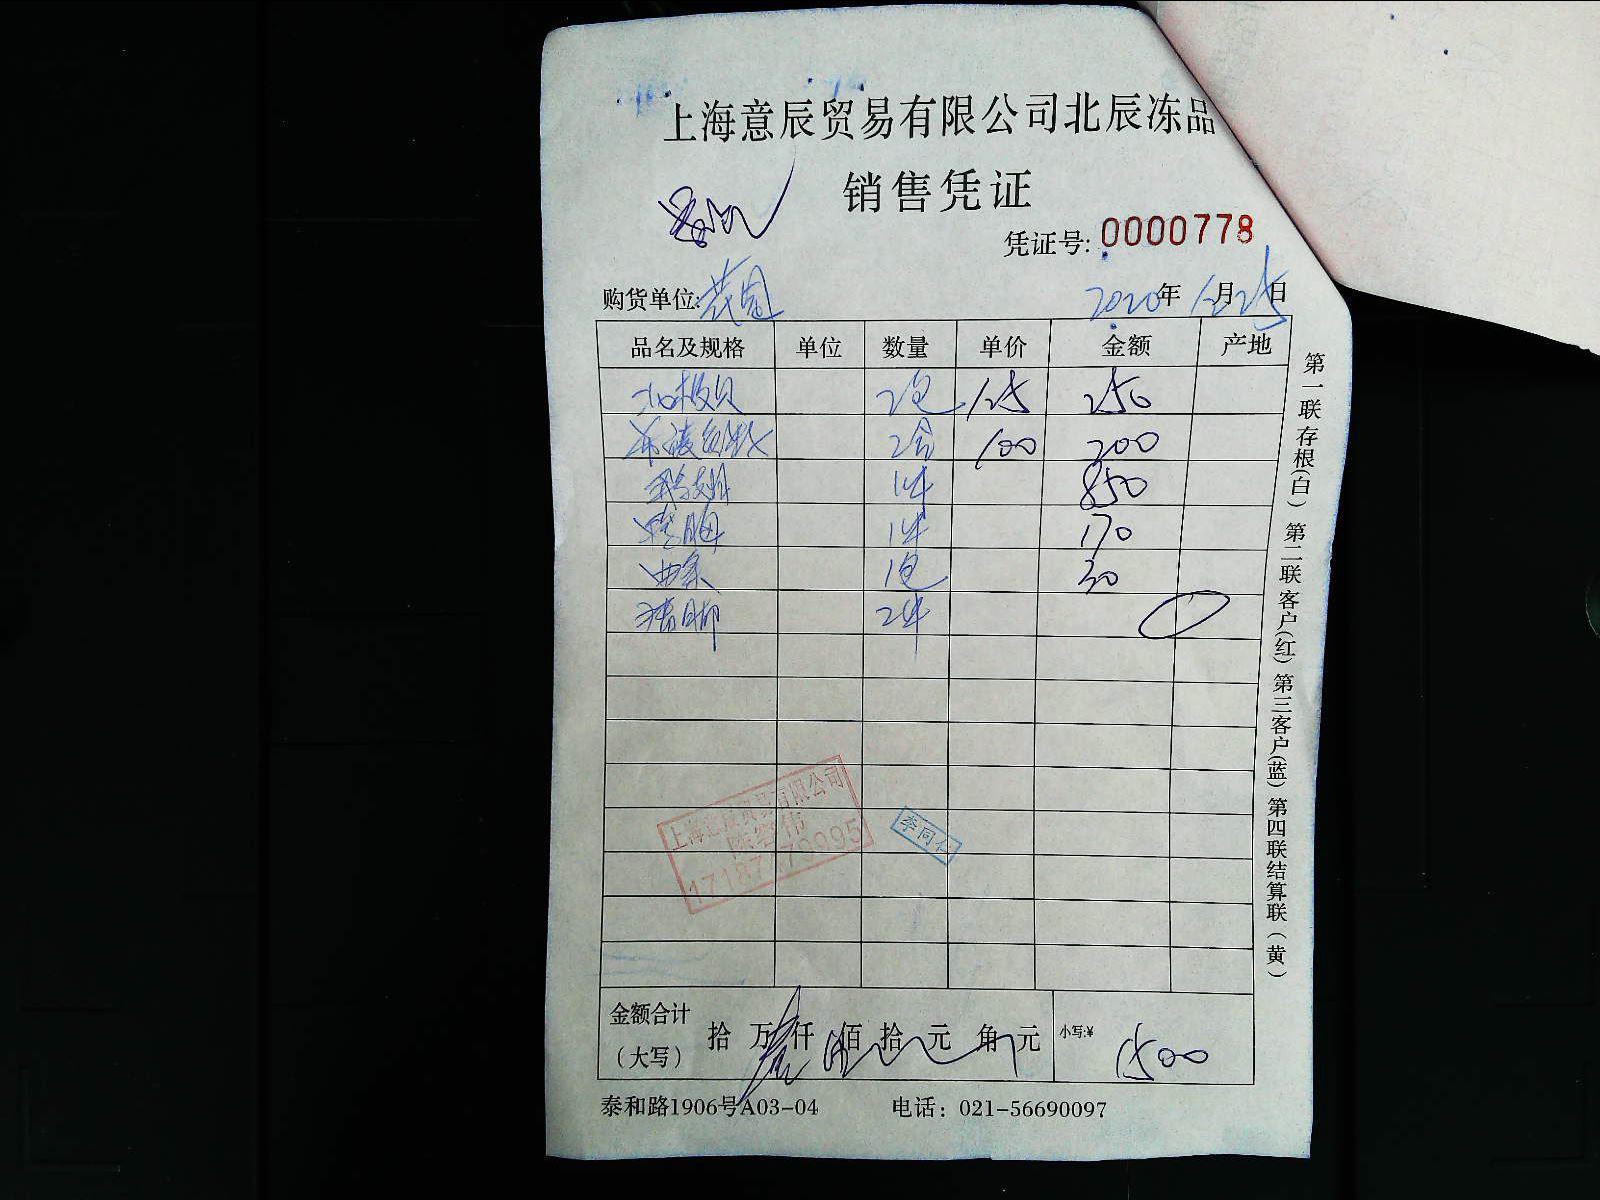 上海意辰贸易有限公司北辰冻品
销售凭证
凭证号: 0000778
购货单位: 2020年12月25日
品名及规格 单位 数量 单价 金额 产地
北极贝 2包 125 250
希鲮鱼 2合 100 200
鹅翅 1件 850
1件 170
1包 30
猪脚 2件
上海意辰贸易有限公司
李同仁
金额合计（大写） 拾 万 仟 佰 拾 元 角 元 小写:¥ 1500
泰和路1906号A03-04 电话：021-56690097
第一联存根(白) 第二联客户(红) 第三客户(蓝) 第四联结算联(黄)